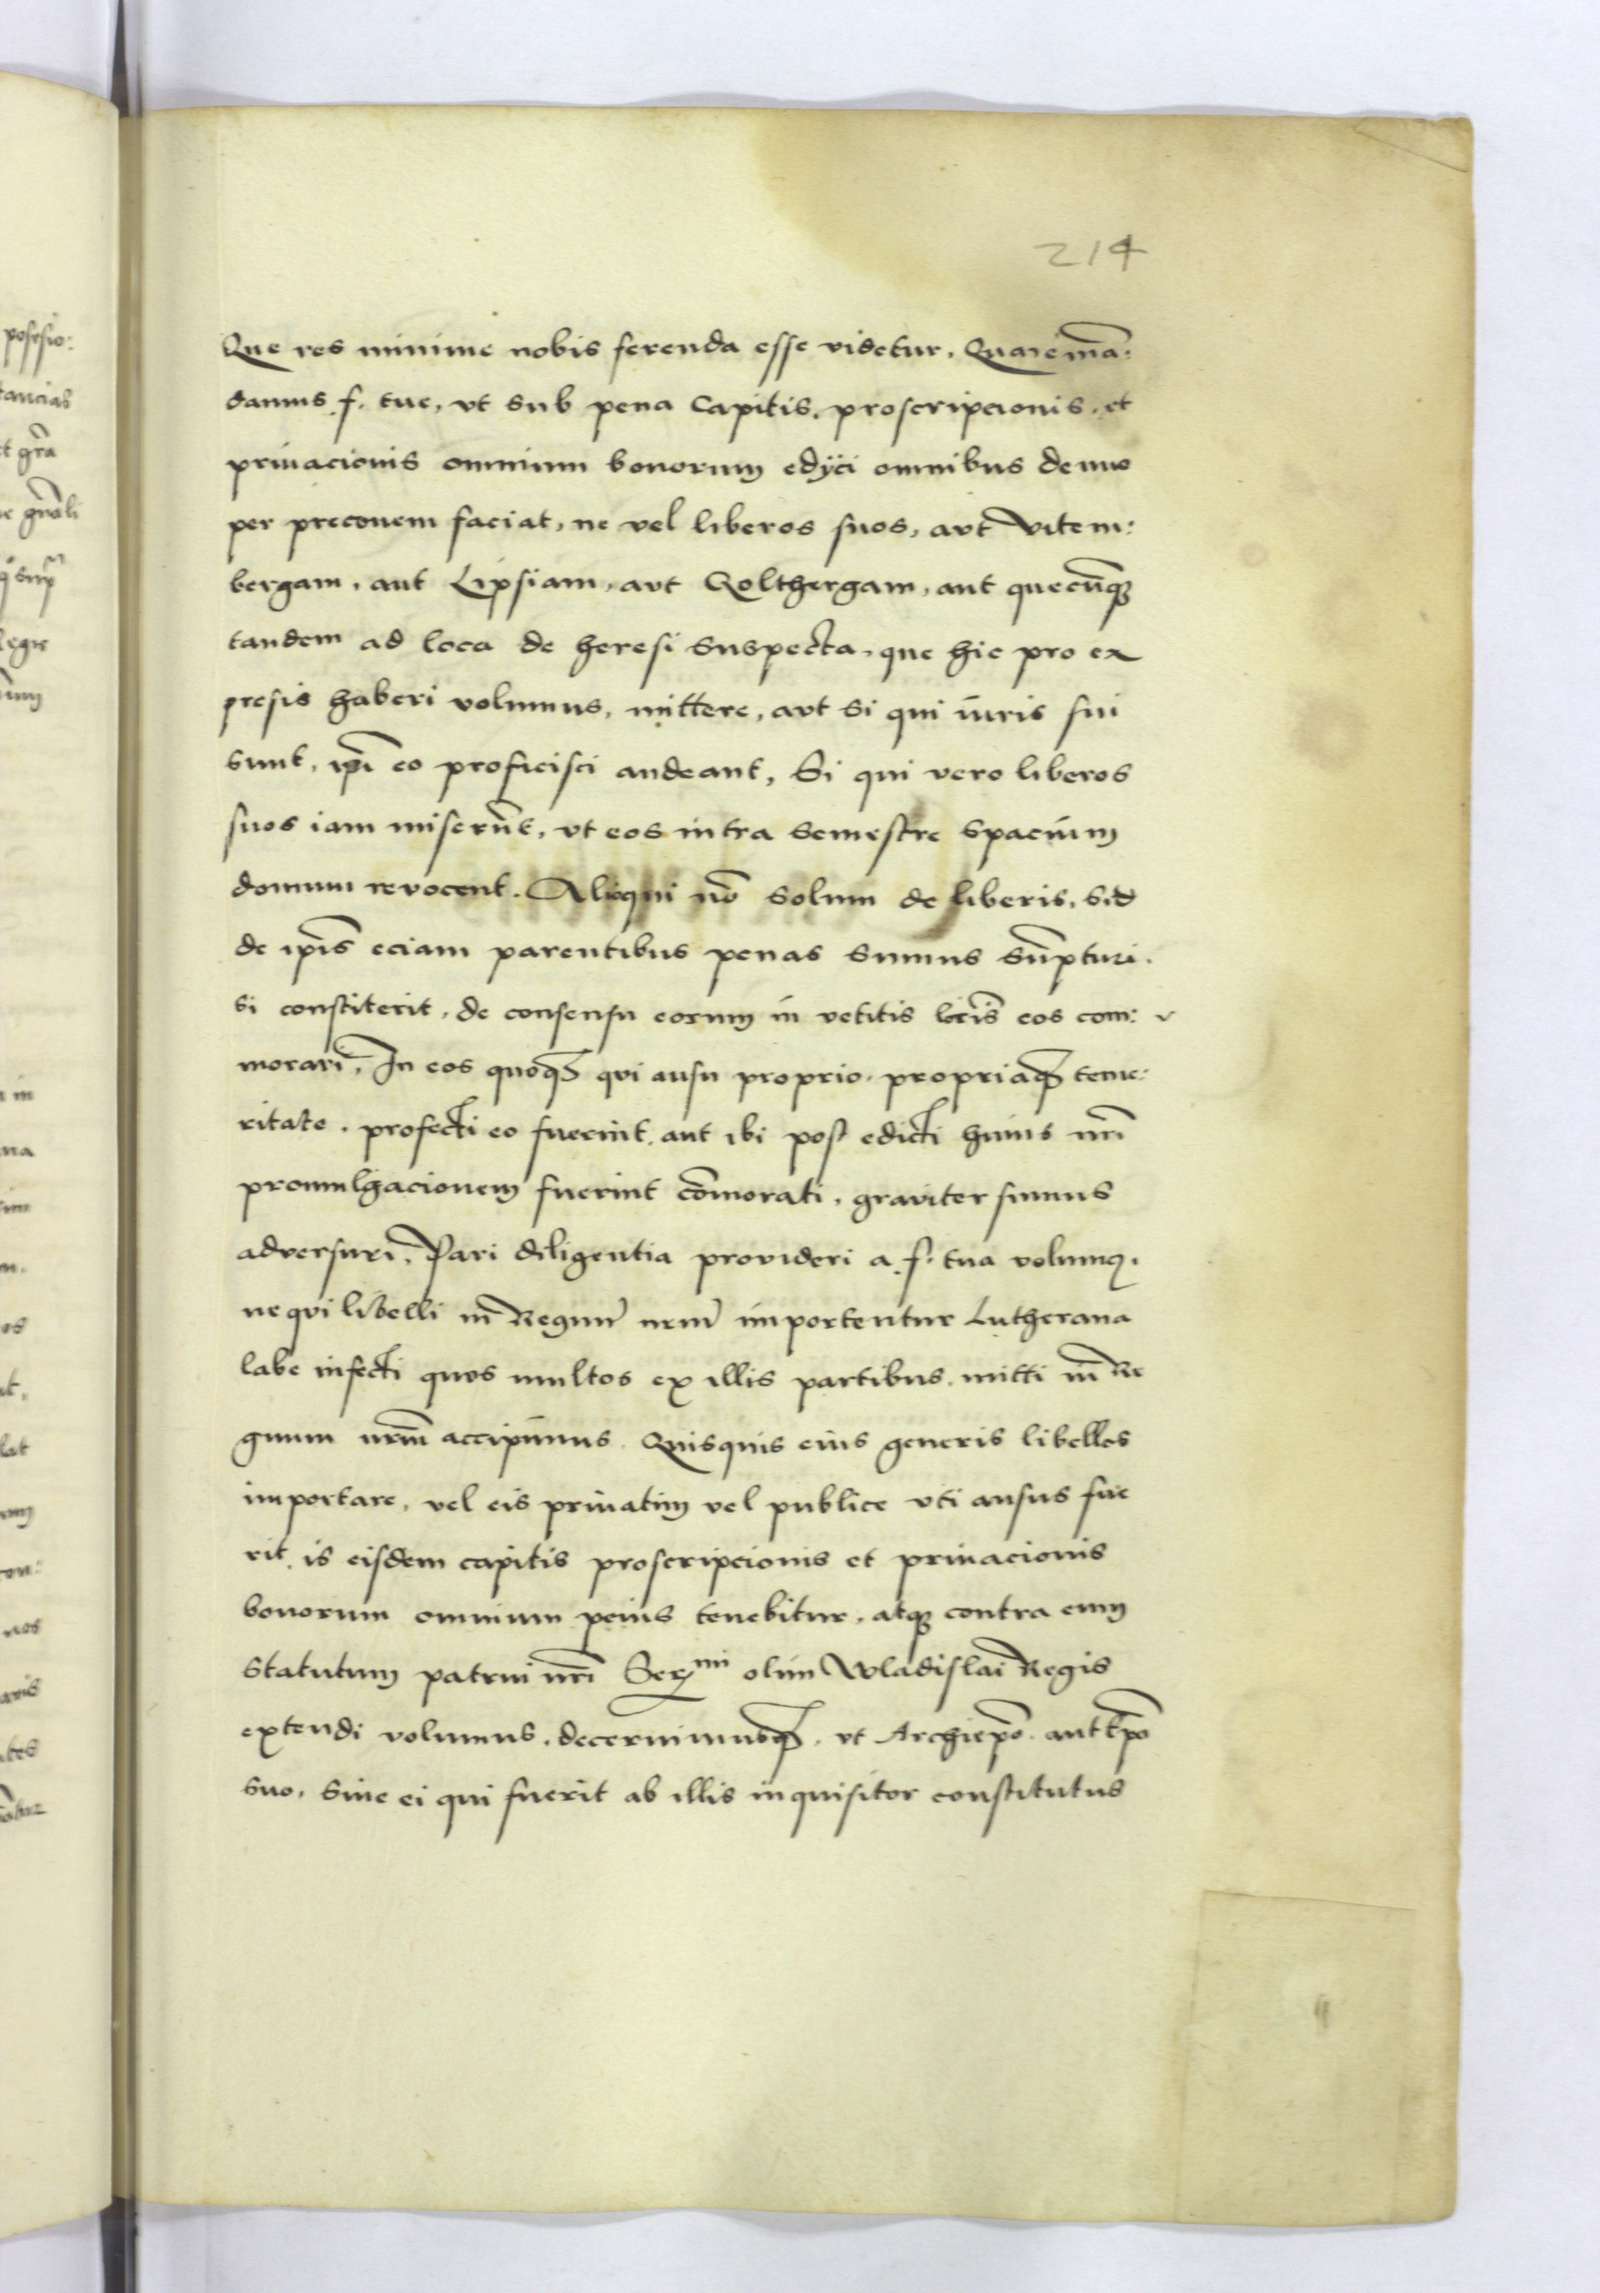 214
Que res minime nobis ferenda esse videtur. Quare mā:
damus f. tue, vt sub pena Capitis, proscripcionis, et
priuacionis omnium bonorum edÿci omnibus denuo
per preconem faciat, ne vel liberos suos, aut Vitem:
bergam, aut Lipsiam, aut Goltbergam, aut quecūq̨
tandem ad loca de heresi suspecta, que hic pro ex
presis haberi volumus, mittere, aut si qui iuris sui
sunt, ip̄i eo proficisci audeant, Si qui vero liberos
suos iam miserūt, vt eos intra semestre spacium
domum revocent. Alioqui nō solum de liberis, sed
de ip̄is eciam parentibus penas sumus sūpturi.
si constiterit, de consensu eorum in vetitis locis eos com:
morari, In eos quoq̨ qui ausu proprio, propriaq̨ teme:
ritate, profecti eo fuerint, aut ibi post edicti huius nr̄i
promulgacionem fuerint cōmorati, graviter sumus
adversuri. Pari diligentia provideri a f. tua volumꝰ,
ne qui libelli in Regnū nrm̄ importentur Lutherana
labe infecti quos multos ex illis partibus, mitti in Re
gnum nrm̄ accipimus. Quisquis eius generis libellos
importare, vel eis priuatim vel publice vti ausus fue
rit, is eisdem capitis proscripcionis et priuacionis
bonorum omnium penis tenebitur, atq̨ contra eum
statutum patrui nr̄i Serᵐⁱ olim Wladislai Regis
extendi volumus, decernimusq̨, vt Archiep̄o. aut Ep̄o
suo, Siue ei qui fuerit ab illis inquisitor constitutus